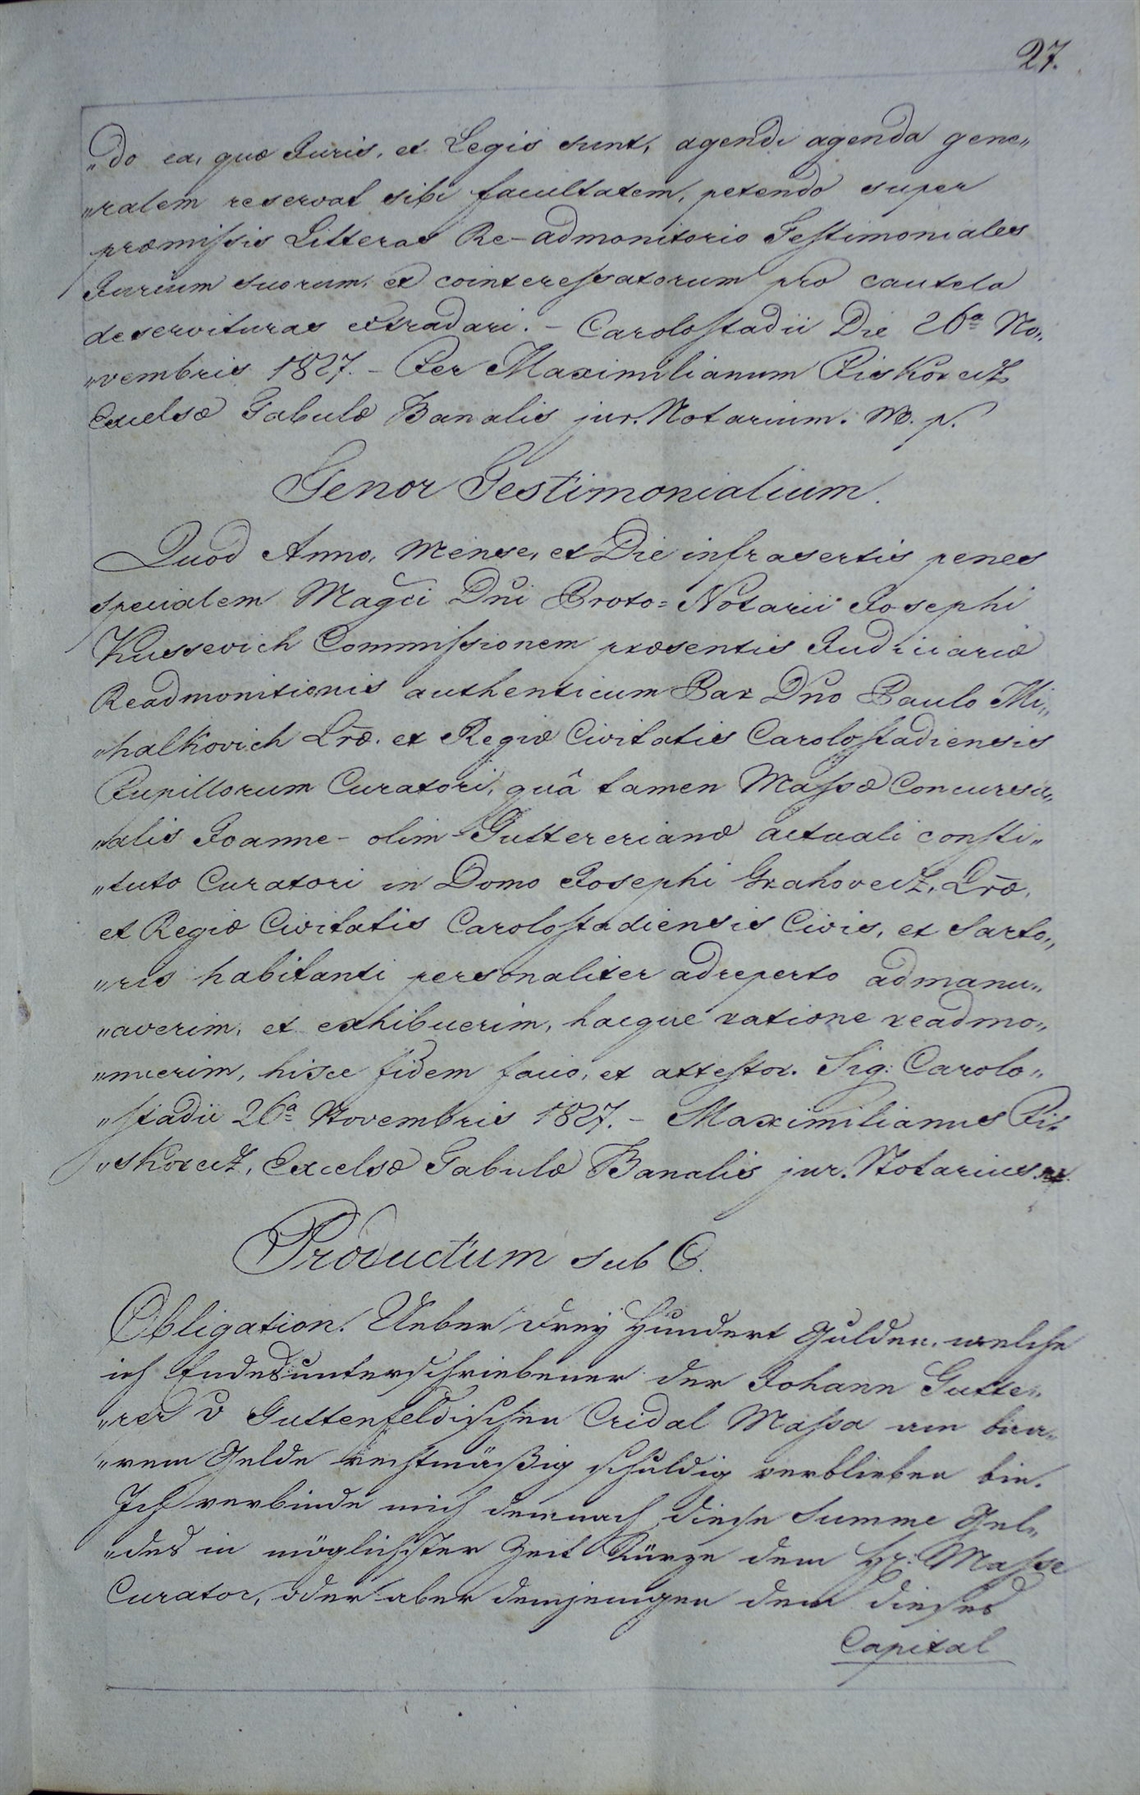 27.
„do ea, quæ Juris, et Legis sunt, agendi agenda gene„
„ralem reservat sibi facultatem, petendo super
præmissis Litteras Re-admonitorio Testimoniales
Jurium suorum, et cointeressatorum pro cautela
deservituras extradari. – Carolostadii Die 26ª No„
„vembris 1827. – Per Maximilianum Piskorecz
Excelsæ Tabulæ Banalis jur. Notarium. m. p.
Tenor Testimonialium.
Quod Anno, Mense, et Die infrasertis penes
specialem Magci Dni Proto=Notarii Josephi
Kussevich Commissionem præsentis Judiciariæ
Readmonitionis authenticum Par Dno Paulo Mi„
„halkovich Lræ. et Regiæ Civitatis Carolostadiensis
Pupillorum Curatori, quâ tamen Massæ Concursu„
„alis Joanne- olim Guttererianæ actuali consti„
„tuto Curatori in Domo Josephi Grahovecz, Lræ,
et Regiæ Civitatis Carolostadiensis Civis, et Sarto„
„ris habitanti personaliter adreperto admanu„
„averim, et exhibuerim, hacque ratione readmo„
„nuerim, hisce fidem facio, et attestor. Sig: Carolo„
„stadii 26ª Novembris 1827. – Maximilianus Pi„
„skorecz, Excelsæ Tabulæ Banalis jur. Notarius mp.
Productum sub C.
Obligation. Ueber drey Hundert Gulden, welche
ich Endesunterschriebener der Johann Gutte„
„rer v Guttenfeldischen Cridal Massa am baa„
„rem Gelde rechtmäßig schuldig verblieben bin.
Ich verbinde mich demnach diese Summe Gel„
„des in möglichster Zeit Kürze dem Hr: Masse
Curator, oder aber demjenigen dem dieses
Capital